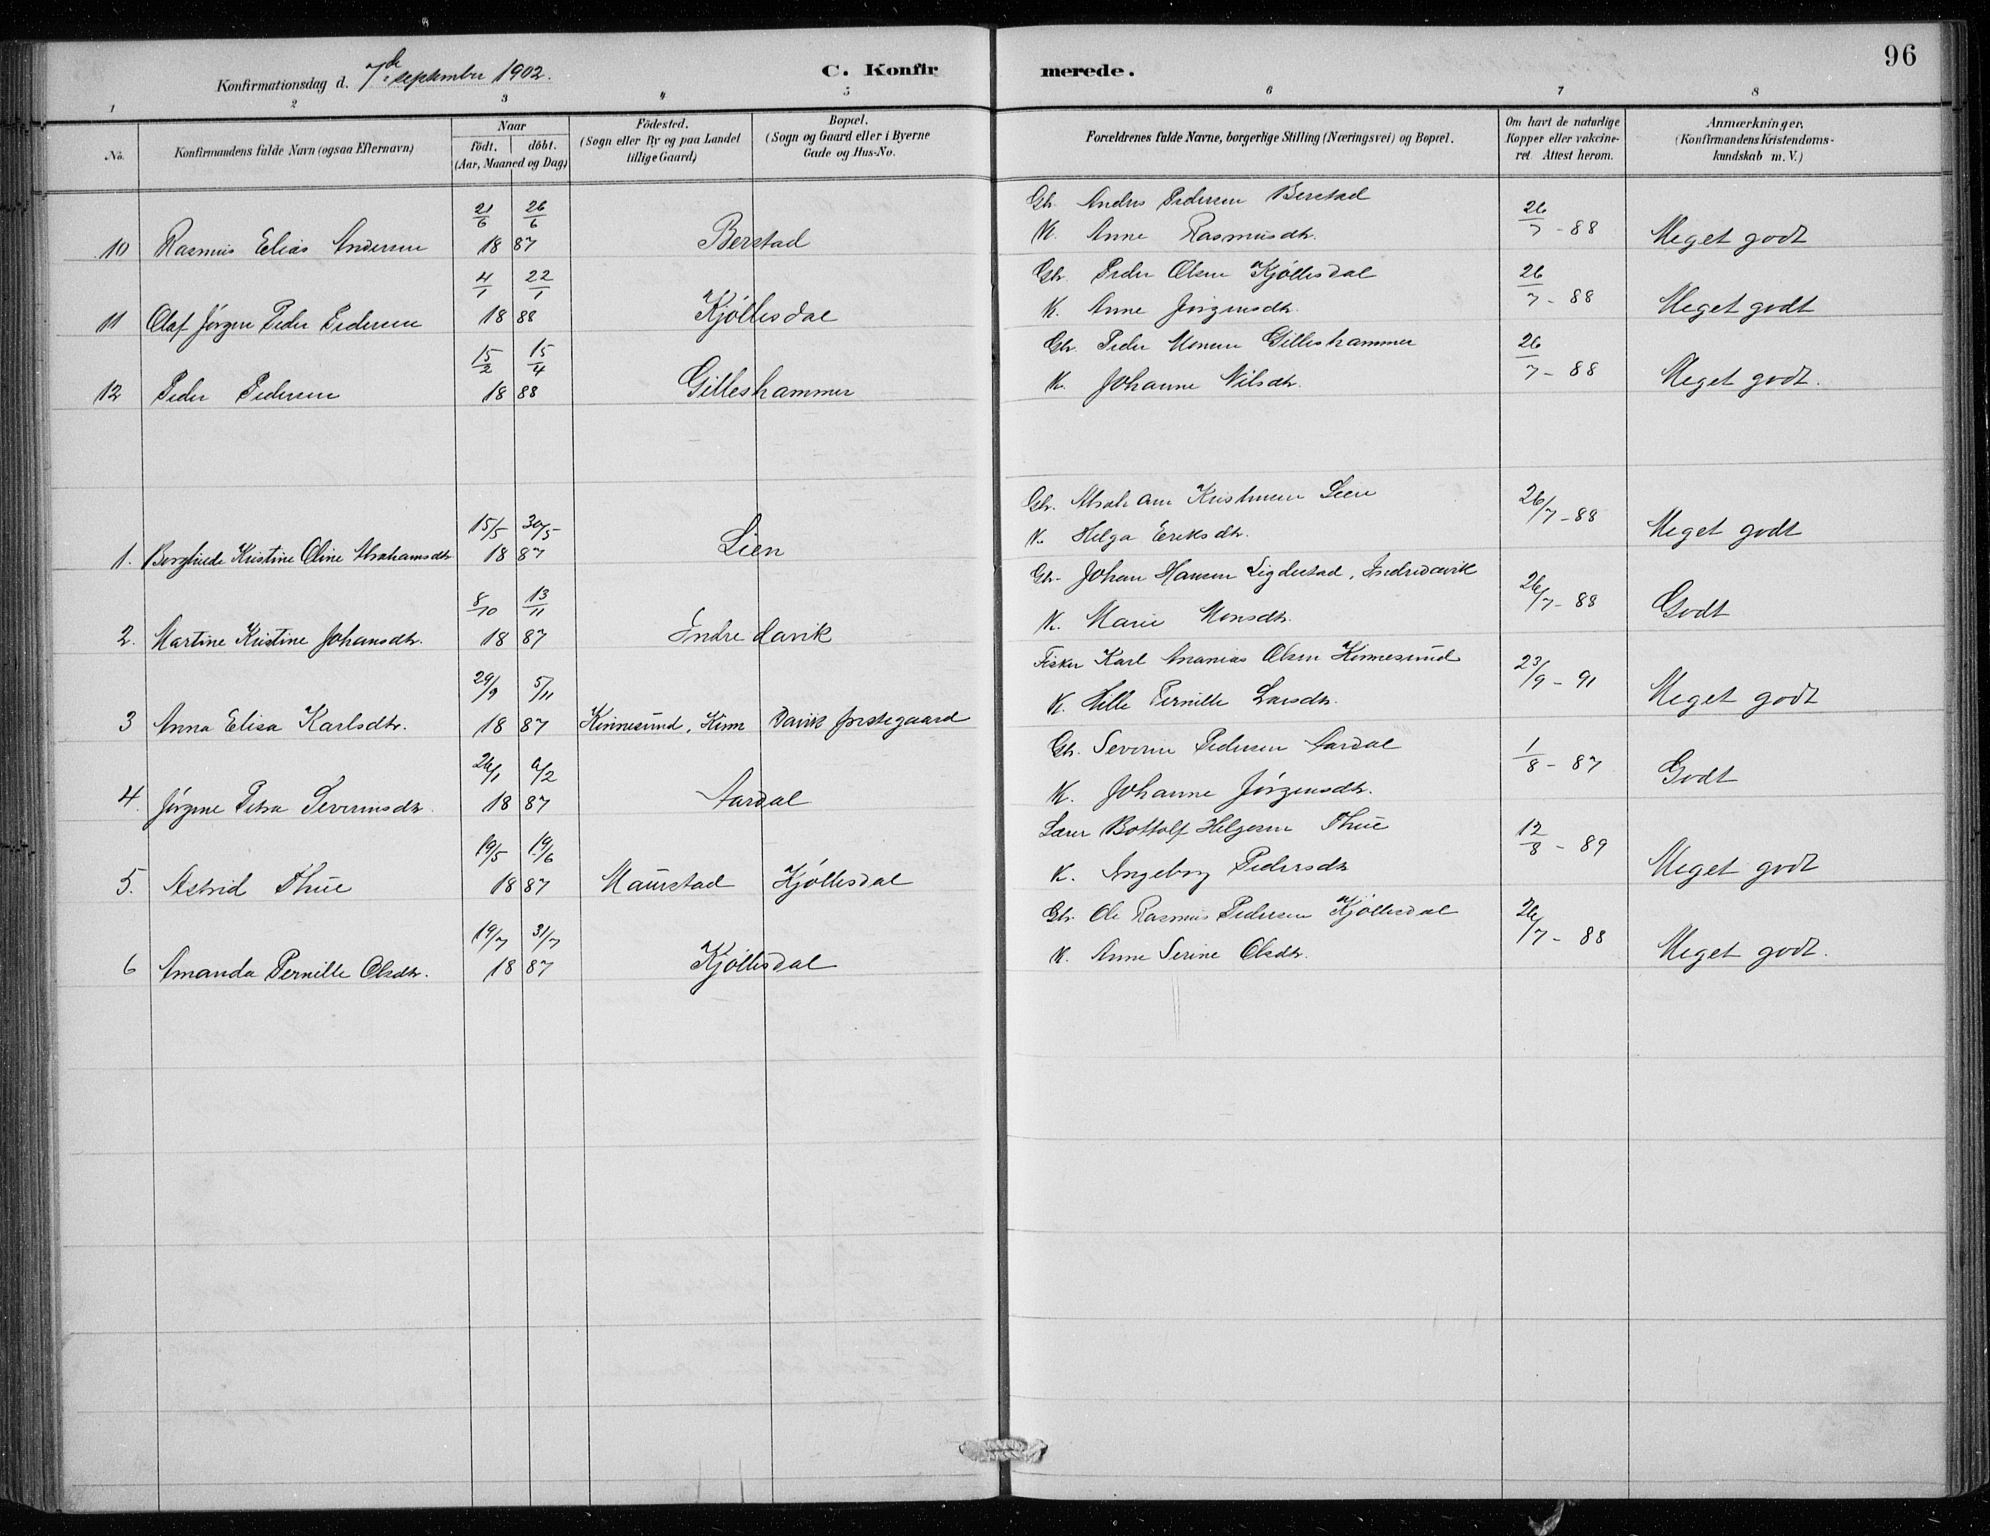 96
Konfirmationsdag d. 7de september 1902.
C. Konfirmerede.
1 2 3 4 5 6 7 8
No.
Konfirmandens fulde Navn (ogsaa Efternavn)
Naar
födt. döbt.
(Aar, Maaned og Dag)
Födested.
(Sogn eller By og paa Landet
tillige Gaard)
Bopæl.
(Sogn og Gaard eller i Byerne
Gade og Hus-No.
Forældrenes fulde Navne, borgerlige Stilling (Næringsvei) og Bopæl.
Om havt de naturlige
Kopper eller vakcine-
ret. Attest herom.
Anmærkninger.
(Konfirmandens Kristendoms-
kundskab m. V.)
21/6 26/6 Gbr. Anders Pedersen Berstad
10 Rasmus Elias Andersen 1887 Berstad K. Anne Rasmusdtr. 26/7-88 Meget godt
4/1 22/1 Gbr. Peder Olsen Kjøllesdal
11 Olaf Jørgen Peder Pedersen 1888 Kjøllesdal K. Anne Jørgensdtr. 26/7-88 Meget godt
15/2 15/4 Gbr. Peder Monsen Gilleshammer
12 Peder Pedersen 1888 Gilleshammer K. Johanne Nilsdtr. 26/7-88 Meget godt.
15/5 30/5 Gbr. Abraham Kristensen Lien
1. Borghilde Kristine Oline Abrahamsdtr 1887 Lien K. Helga Eriksdtr. 26/7-88 Meget godt
8/10 13/11 Gbr. Johan Hansen Sigdestad, Indredavik
2. Martine Kristine Johansdtr. 1887 Indredavik K. Marie Monsdtr. 26/7-88 Godt
29/9 5/11 Fisker Karl Ananias Olsen Kinnesund
3 Anna Elisa Karlsdtr. 1887 Kinnesund, Kinn Davik præstegaard K. Hille Pernille Larsdtr. 23/9-91 Meget godt
26/1 /2 Gbr. Severin Pedersen Aardal
4. Jørgine Petra Severinsdtr. 1887 Aardal K. Johanne Jørgensdtr. 1/8-87 Godt
19/5 19/6 Lærer Bottolf Helgesen Thue
5. Astrid Thue 1887 Maurstad Kjøllesdal K. Ingeborg Pedersdtr 12/8-89 Meget godt
19/7 31/7 Gbr. Ole Rasmus Pedersen Kjøllesdal
6 Amanda Pernille Olsdtr. 1887 Kjøllesdal K. Anne Serine Olsdtr. 26/7-88 Meget godt.